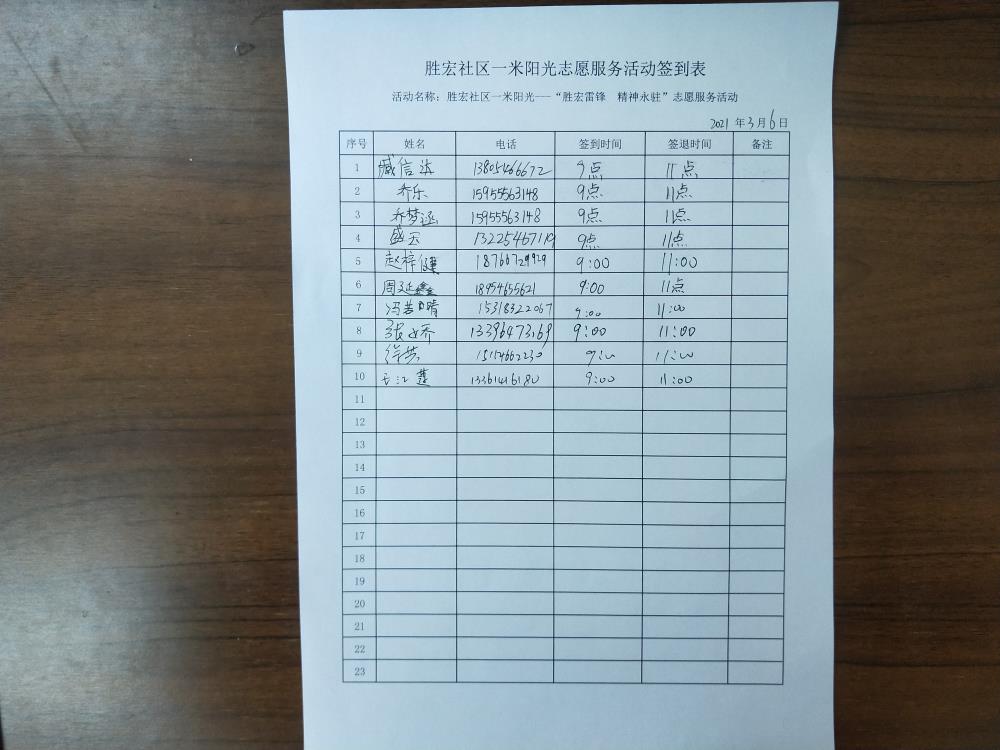 胜宏社区一米阳光志愿服务活动签到表
活动名称：胜宏社区一米阳光——“胜宏雷锋 精神永驻”志愿服务活动
2021 年 3 月 6 日
序号 姓名 电话 签到时间 签退时间 备注
1 臧信法 13805466672 9点 11点
2 乔乐 15955563148 9点 11点
3 乔梦涵 15955563148 9点 11点
4 盛云 13225467119 9点 11点
5 赵梓健 18766729929 9:00 11:00
6 周延鑫 18954655621 9:00 11点
7 冯若晴 15318322067 9:00 11:00
8 张乔 13396473169 9:00 11:00
9 15154662230 9:00 11:00
10 13361416180 9:00 11:00
11
12
13
14
15
16
17
18
19
20
21
22
23